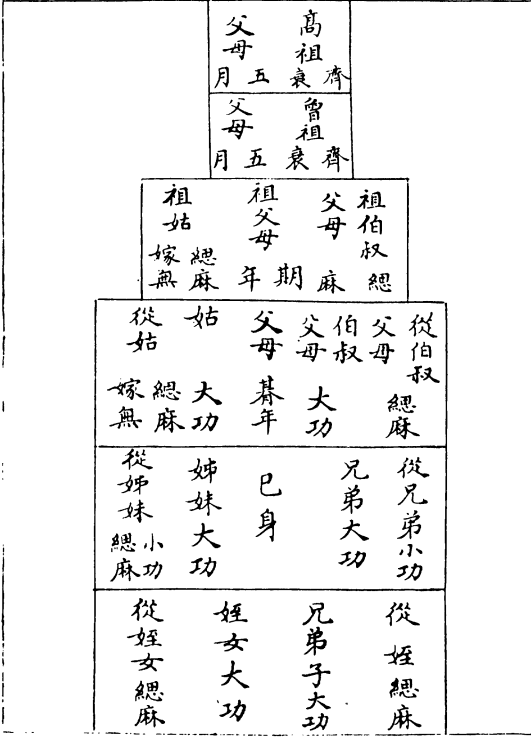 高祖父母
齊衰五月
曾祖父母
齊衰五月
祖伯叔父母
緦麻
祖父母
期年
祖姑
緦麻
嫁無
從伯叔父母
緦麻
伯叔父母
大功
父母
朞年
姑
大功
從姑
緦麻
嫁無
從兄弟小功
兄弟大功
巳身
姊妹大功
從姊妹
小功
緦麻
從姪緦麻
兄弟子大功
姪女大功
從姪女緦麻